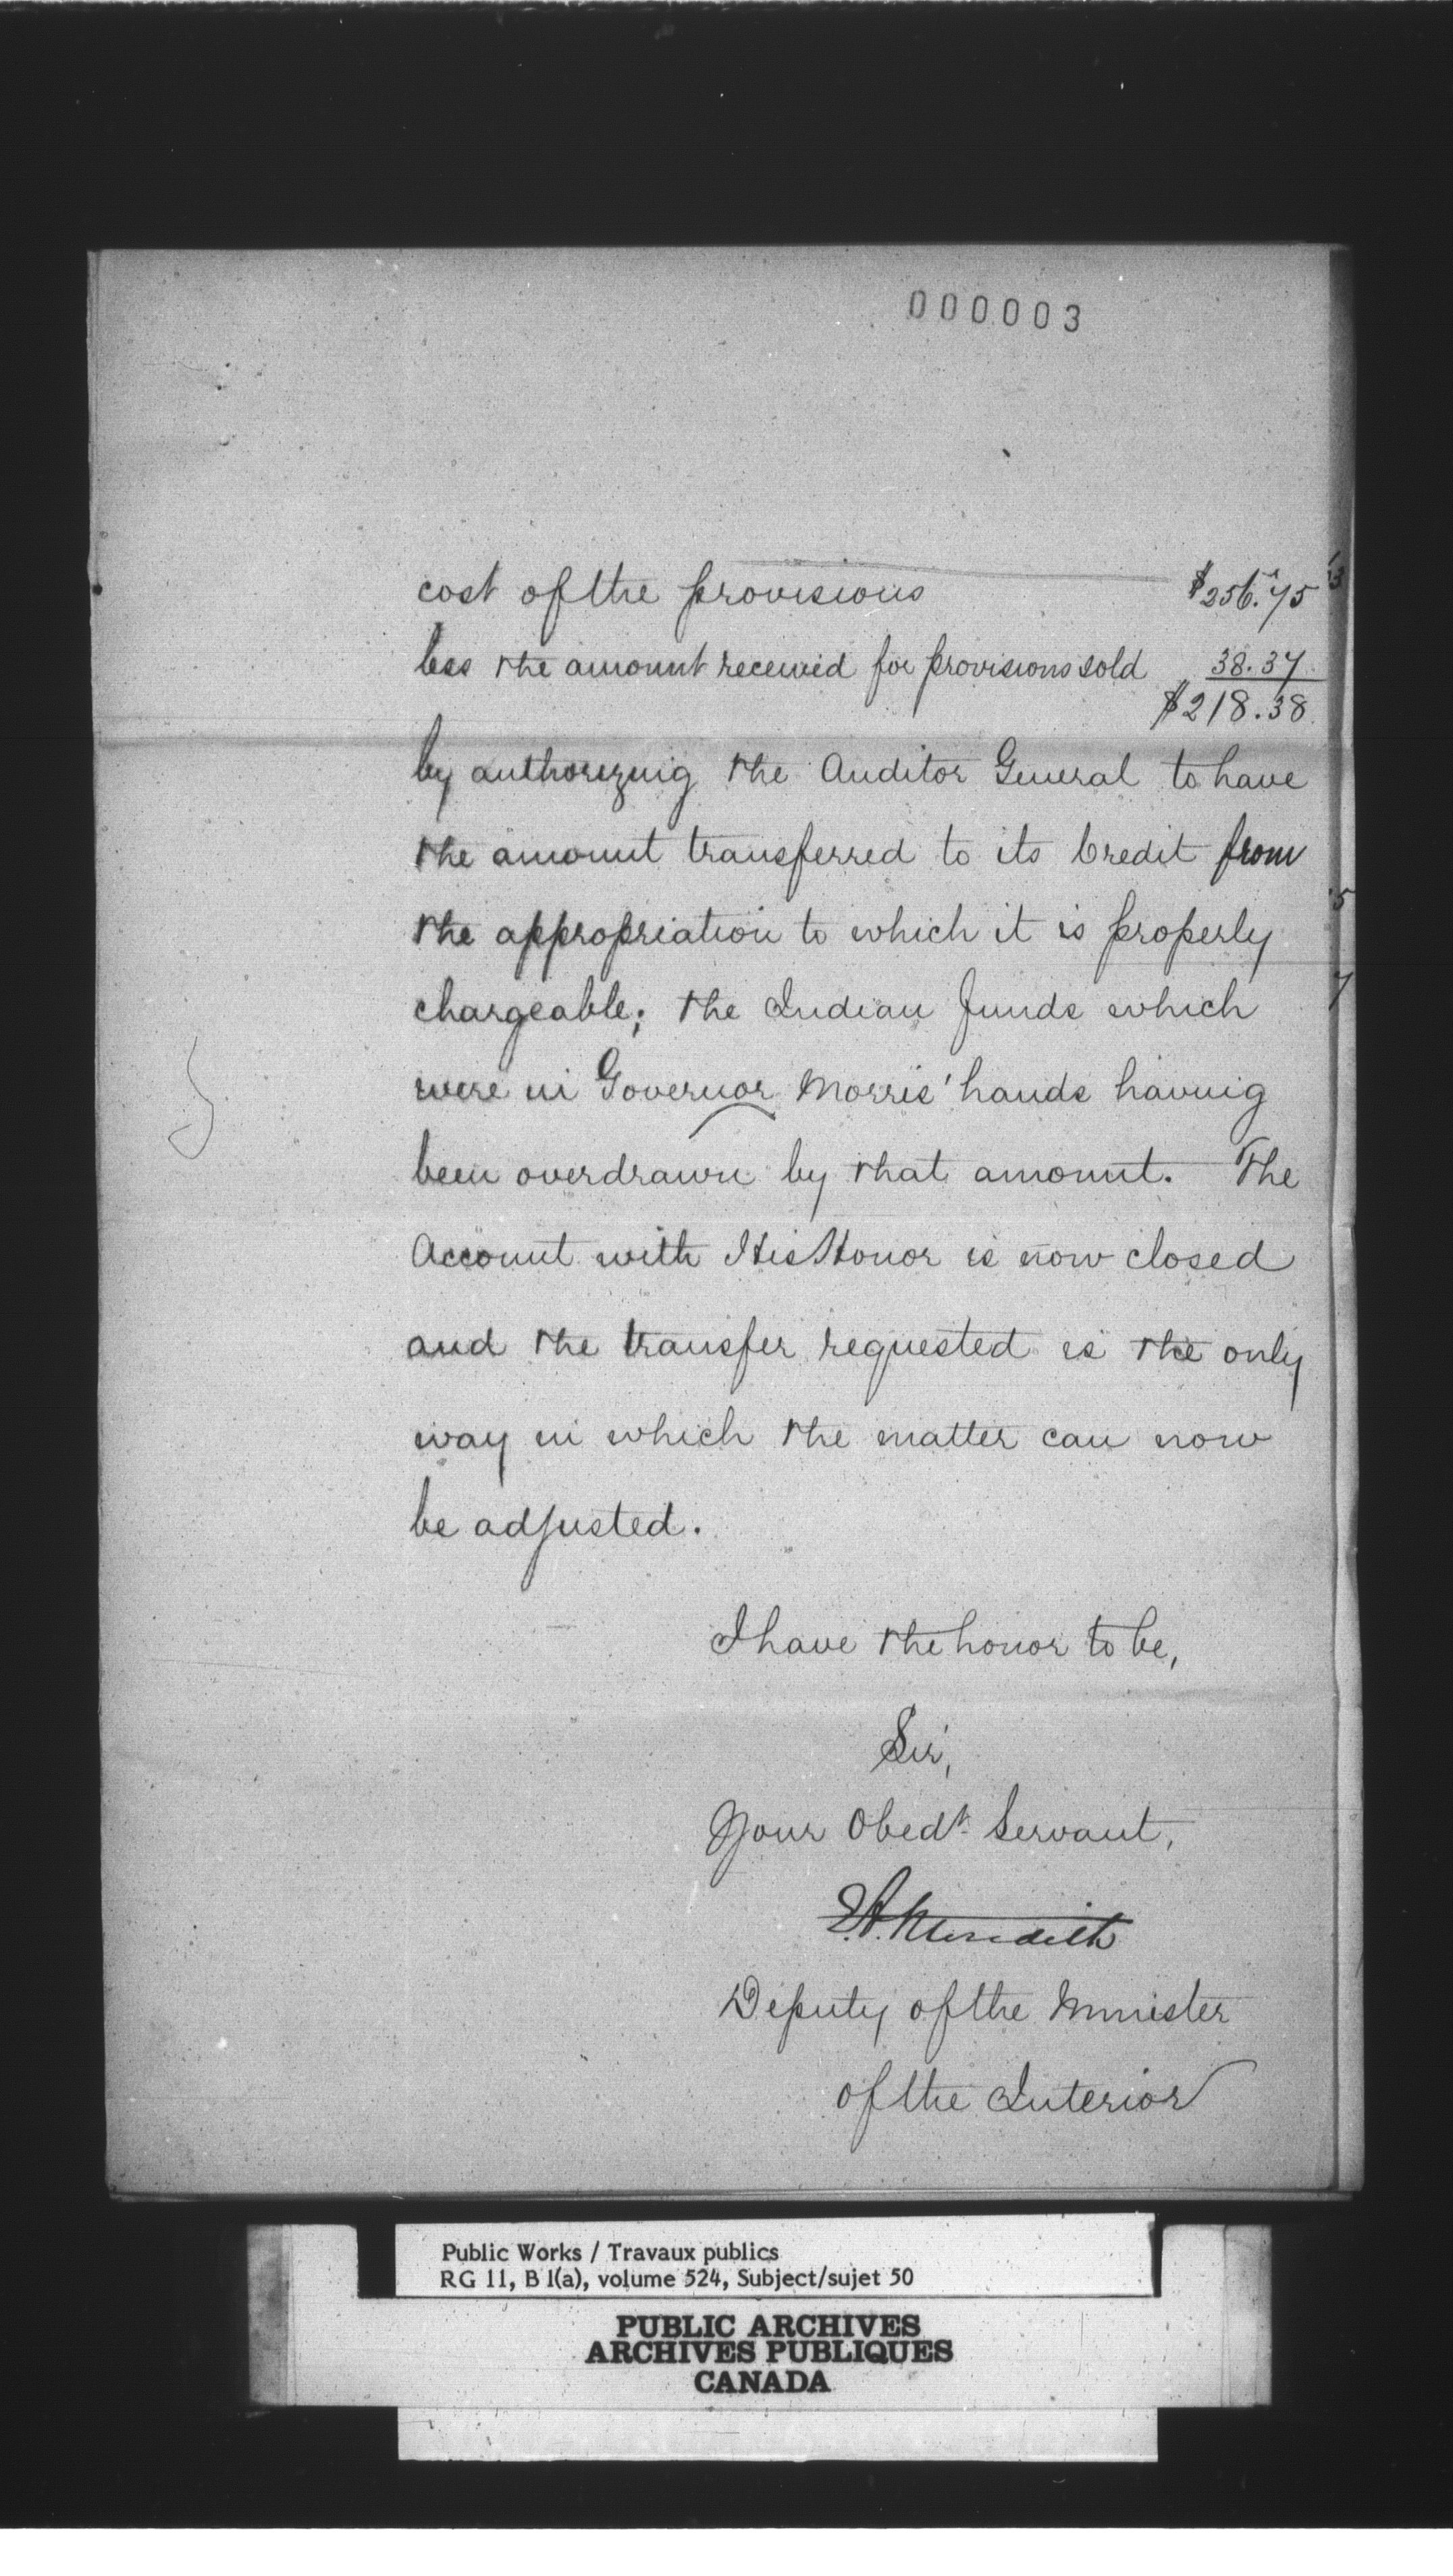 000003
cost of the provisions $256.75
less the amount received for provisions sold 38.37
$218.38
by authorizing the Auditor General to have
the amount transferred to its Credit from
the appropriation to which it is properly
chargeable; the Indian funds which
were in Governor Morris' hands having
been overdrawn by that amount. The
Account with His Honor is now closed
and the transfer requested is the only
way in which the matter can now
be adjusted.
I have the honor to be,
Sir,
Your Obedt. Servant,
E.A. Meredith
Deputy of the Minister
of the Interior
Public Works / Travaux publics
RG 11, B 1(a), volume 524, Subject/sujet 50
PUBLIC ARCHIVES
ARCHIVES PUBLIQUES
CANADA